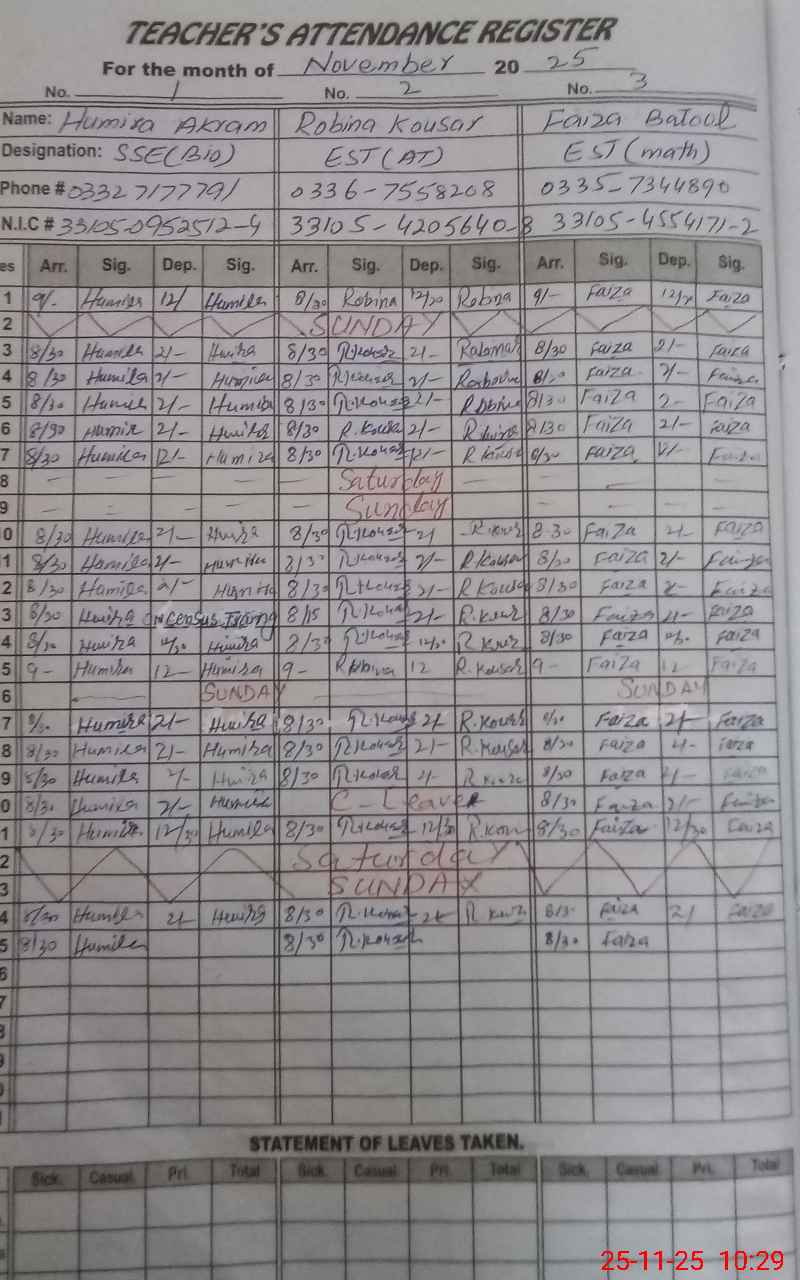 TEACHER'S ATTENDANCE REGISTER
For the month of November 20 25
No. 1 No. 2 No. 3
Name: Humira Akram Robina Kousar Faiza Batool
Designation: SSE(Bio) EST(AT) EST(math)
Phone # 0332 7177791 0336-7558208 0335-7344890
N.I.C # 33105-0952512-4 33105-4205640-8 33105-4554171-2
es Arr. Sig. Dep. Sig. Arr. Sig. Dep. Sig. Arr. Sig. Dep. Sig.
1 9/- Humira 12/ Humira 8/30 Robina 12/30 Robina 9/- Faiza Faiza
2 SUNDAY
3 8/30 Humira 2/- Humira 8/30 R.Kousar 2/- 8/30 Faiza 2/- Faiza
4 8/30 Humira 2/- Humira 8/30 R.Kousar 2/- Faiza 2/- Faiza
5 8/30 Humira 2/- Humira 8/30 R.Kousar 2/- Robina 8/30 Faiza 2- Faiza
6 8/30 Humira 2/- Humira 8/30 R.Kousar 2/- Robina 8/30 Faiza 2/- Faiza
7 8/30 Humira 12/- Humira 8/30 R.Kousar 12/- 8/30 Faiza 12/- Faiza
8 Saturday
9 Sunday
0 8/30 Humira 2/- Humira 8/30 R.Kousar 2/ R.Kousar 8-30 Faiza 2/- Faiza
1 8/30 Humira 2/- Humira 8/30 R.Kousar 2/- R.Kousar 8/30 Faiza 2/- Faiza
2 8/30 Humira 2/- Humira 8/30 R.Kousar 2/- R.Kousar 8/30 Faiza 2- Faiza
3 8/30 Humira On Census 8/15 R.Kousar 2/- R.Kousar 8/30 Faiza 2/- Faiza
4 8/30 Humira 12/30 Humira 8/30 R.Kousar 12/30 R.Kousar 8/30 Faiza 12/30 Faiza
5 9- Humira 12- Humira 9- Robina 12 R.Kousar 9- Faiza 12 Faiza
6 SUNDAY SUNDAY
7 8/30 Humira 2/- Humira 8/30 R.Kousar 2/- R.Kousar 8/30 Faiza 2/- Faiza
8 8/30 Humira 2/- Humira 8/30 R.Kousar 2/- R.Kousar 8/30 Faiza 2/- Faiza
9 8/30 Humira 2/- Humira 8/30 R.Kousar 2/- R.Kousar 8/30 Faiza 2/- Faiza
0 8/30 Humira 2/- Humira C-Leave 8/30 Faiza 2/- Faiza
1 8/30 Humira 12/30 Humira 8/30 R.Kousar 12/30 R.Kousar 8/30 Faiza 12/30 Faiza
2 Saturday
3 SUNDAY
4 8/30 Humira 2/ Humira 8/30 R.Kousar 2/- R.Kousar 8/30 Faiza 2/ Faiza
5 8/30 Humira 8/30 R.Kousar 8/30 Faiza
6
7
8
9
0
1
STATEMENT OF LEAVES TAKEN.
Sick. Casual Pri. Total Sick. Casual. Pri. Total Sick. Casual. Pri. Total
25-11-25 10:29